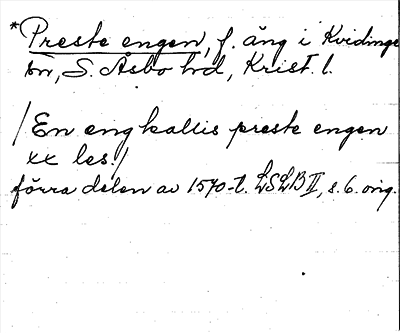 *Preste engen, f. äng i Kvidinge
sn, S. Åsbo hd, Krist. l.
/En eng kallis preste engen
xx les./
förra delen av 1570-t. LSLB II, s. 6. orig.